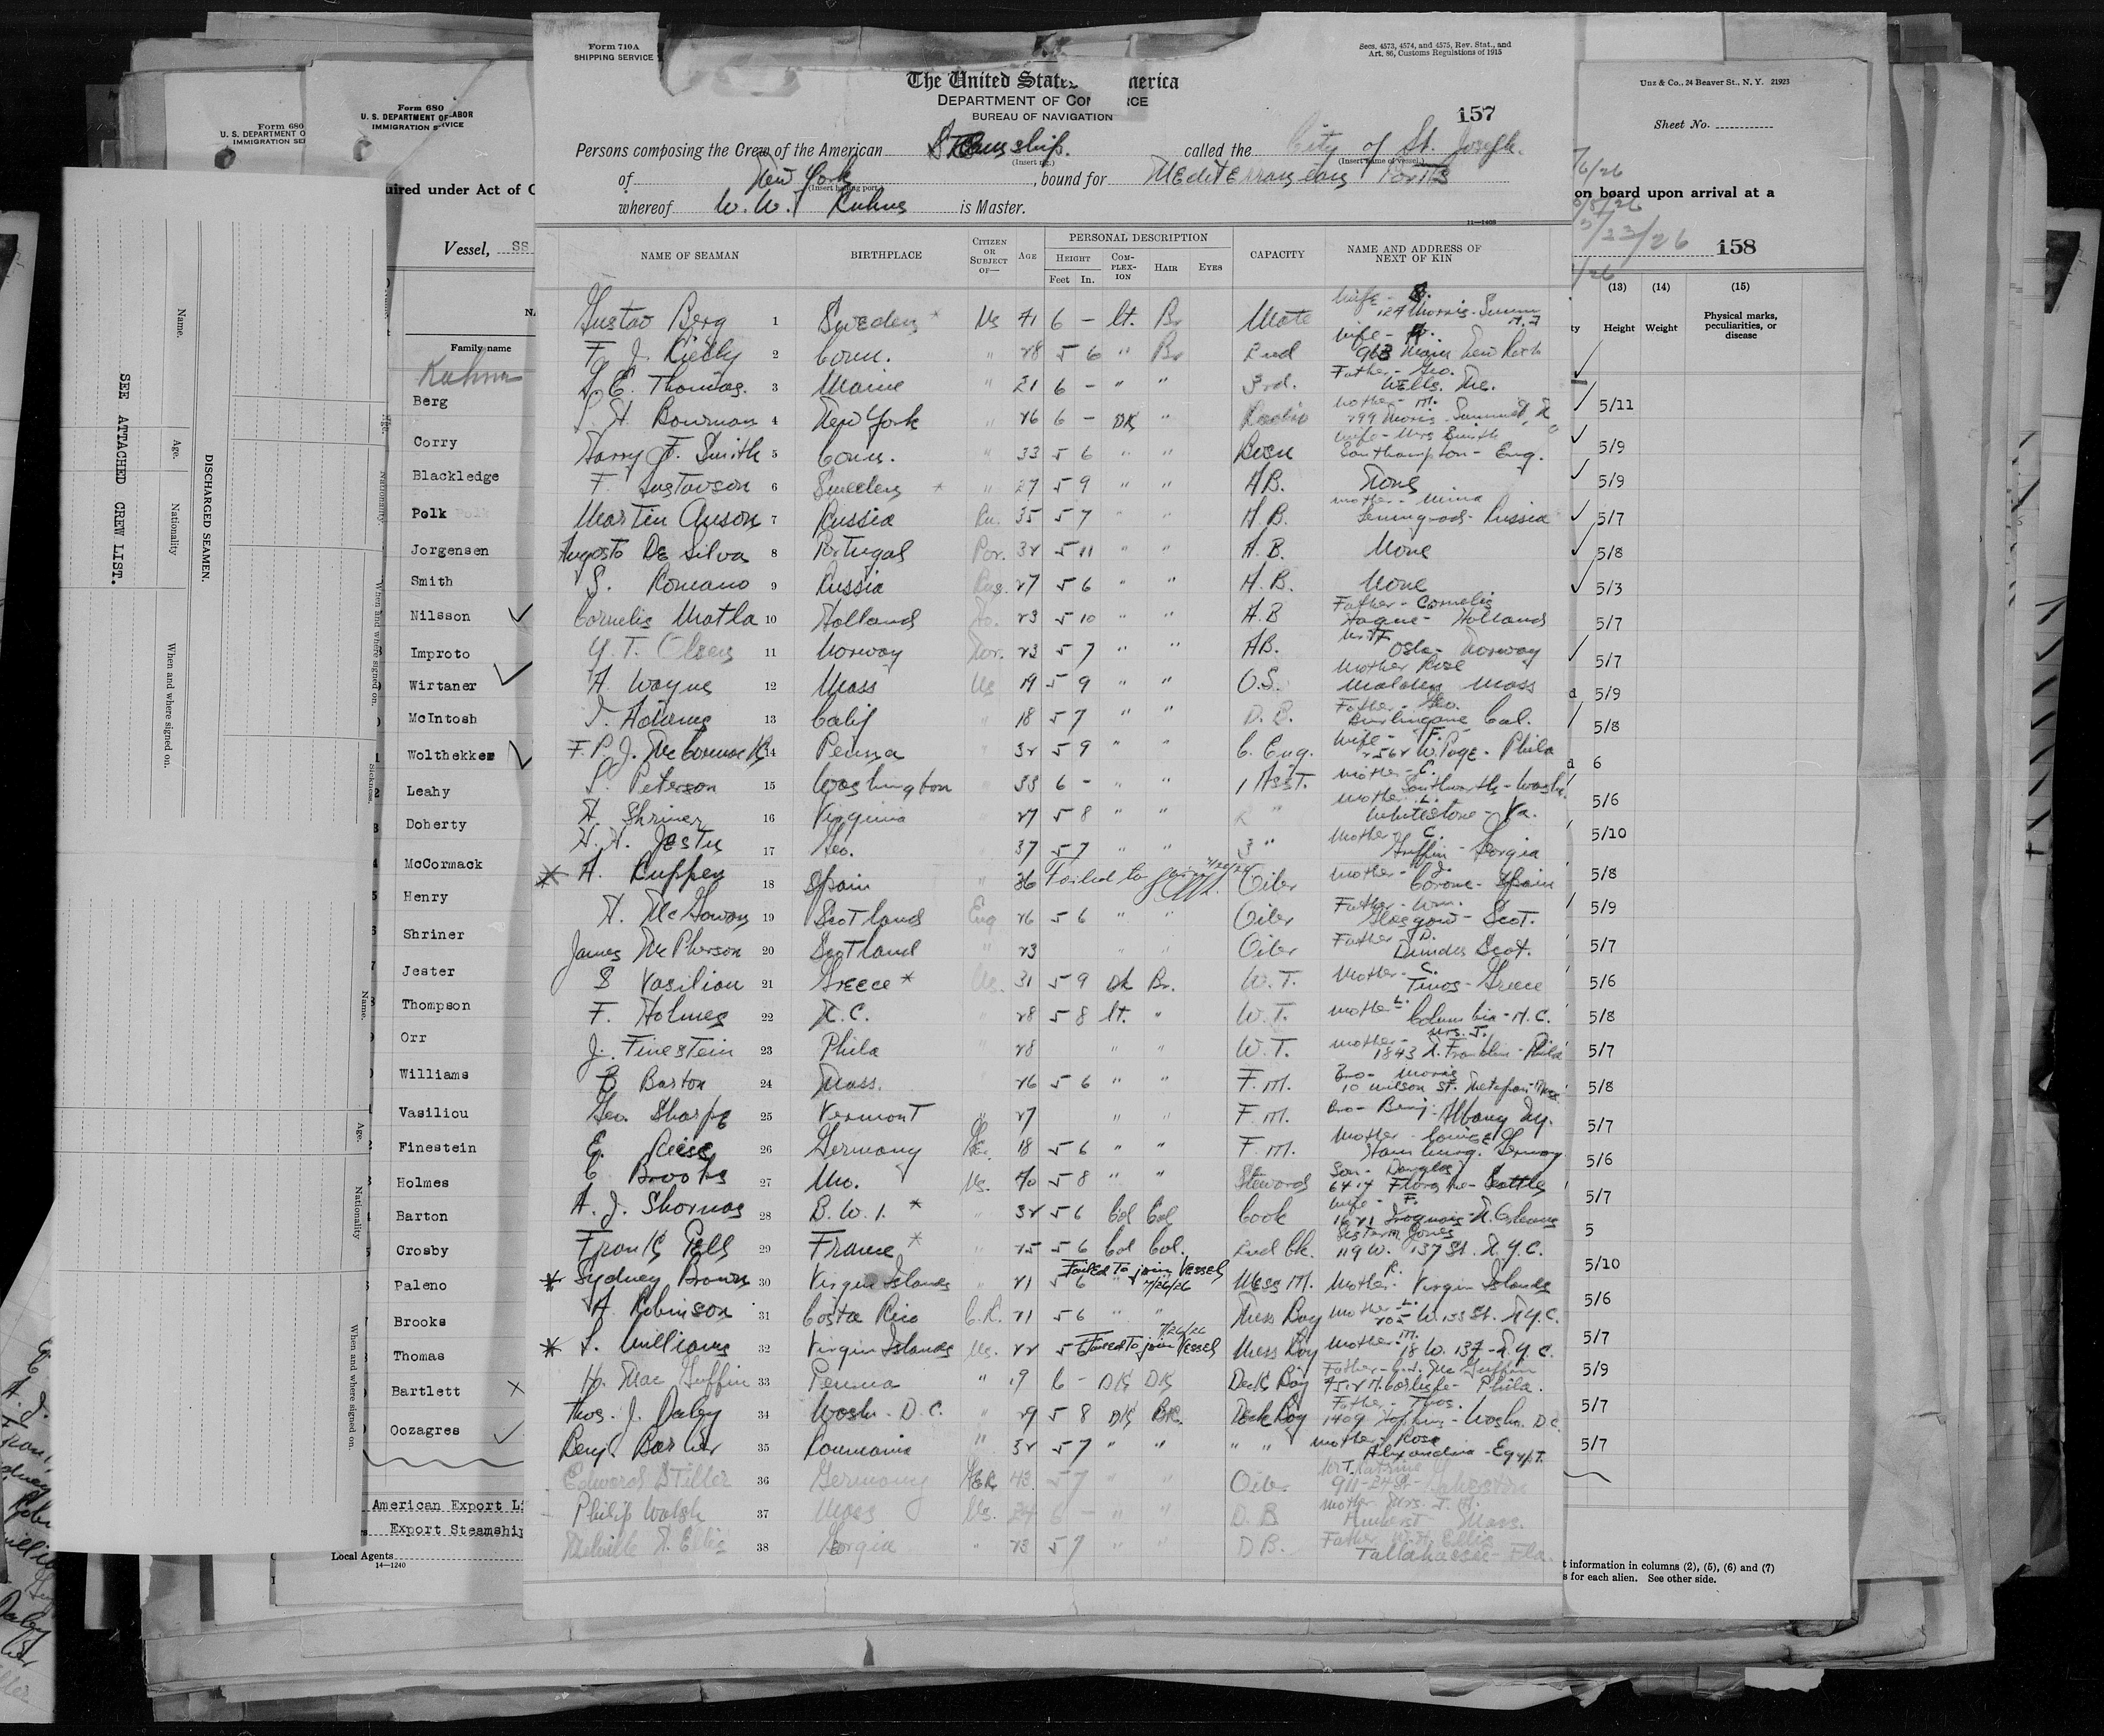 Form 710A
SHIPPING SERVICE
Secs. 4573, 4574, and 4575, Rev. Stat., and
Art. 86, Customs Regulations of 1915
The United States merica
DEPARTMENT OF CO RCE
BUREAU OF NAVIGATION
157
Persons composing the Crew of the American Steamship. called the City of St. Joseph.
(Insert rig.) (Insert name of vessel.)
of New York, bound for Mediterranean Ports
(Insert hailing port)
whereof W. W. Kuhns is Master.
11—1408
NAME OF SEAMAN BIRTHPLACE CITIZEN OR SUBJECT OF— AGE PERSONAL DESCRIPTION CAPACITY NAME AND ADDRESS OF NEXT OF KIN
HEIGHT COM-PLEX-ION HAIR EYES
Feet In.
Gustav Berg 1 Sweden * Us 41 6 – lt. Br Mate Wife 124 Morris
F. J. 2 Conn. " 28 5 6 " Br 2nd Wife 963 Main New Roch
E. Thomas. 3 Maine " 21 6 – " " 3rd. Father - Geo. Wells. Me.
H. Bowman 4 New York " 26 6 – Dk " Radio Mother - M. 299 Morris Summit
Harry F. Smith 5 Conn. " 33 5 6 " " Bosn Wife - Mrs Smith Southampton - Eng.
F. Gustavson 6 Sweden * " 27 5 9 " " A B. None
Martin Anson 7 Russia Ru. 35 5 7 " " A B. Mother - Mina Leningrad - Russia
Augosto De Silva 8 Portugal Por. 32 5 11 " " A. B. None
S. Romano 9 Russia Rus. 27 5 6 " " A. B. None
Cornelis Matla 10 Holland Ho. 23 5 10 " " A. B Father - Cornelis Hague - Holland
T. Olsen 11 Norway Nor. 23 5 7 " " AB. Oslo - Norway
A. Wayne 12 Mass Us 19 5 9 " " O.S. Mother Rose Malden Mass
13 Calif " 18 5 7 " " D. B. Father - Geo. Burlingame Cal.
F. P. J. McCormack 14 Penna " 32 5 9 " " C. Eng. Wife - F. 2562 W. Page - Phila
Peterson 15 Washington " 33 6 – " " 1 Asst. Mother - C. Southworth - Wash.
H. Shriner 16 Virginia " 27 5 8 " " 2 " Mother - L. Whitestone - Va.
H. H. Jester 17 Geo. " 37 5 7 " " 3 " Mother - C. Griffin - Georgia
* A. Cuppen 18 Spain " 36 Failed to join Oiler Mother - J. Corone - Spain
A. McGowan 19 Scotland Eng 26 5 6 " " Oiler Father - Wm. Glasgow - Scot.
James McPherson 20 Scotland " 23 " " Oiler Father - D. Dundee Scot.
S Vasiliou 21 Greece * Us. 31 5 9 Dk Br. W. T. Mother - C. Tinos - Greece
F. Holmes 22 N.C. " 28 5 8 lt. " W. T. Mother - L. Columbia - N. C.
J. Finestein 23 Phila " 28 " " W. T. Mother - Mrs. J. 1843 N. Franklin - Phila
B Barton 24 Mass. " 26 5 6 " " F. M. Bro - Morris 10 Wilson St. Matapan - Mass
Geo. Sharpe 25 Vermont " 27 " " F. M. Bro - Benj. Albany Ny.
E. Reise 26 Germany Ger. 18 5 6 " " F. M. Mother - Louise Hamburg. Germany
C Brooks 27 Mo. Us. 40 5 8 " " Steward Son - Douglas 6414 Flora Ave - Seattle
A. J. 28 B. W. I. * " 32 5 6 Col Col Cook Wife - F. 1621 Iroquois - N. Orleans
Frank Pells 29 France * " 25 5 6 Col Col. 2nd Ck. Sister M. Jones 119 W. 137 St. N.Y.C.
* Sydney Brown 30 Virgin Islands " 21 5 6 Failed to join Vessel 7/26/26 Mess M. Mother - R. Virgin Islands
A. Robinson 31 Costa Rico C.R. 21 5 6 " " Mess Boy Mother - L. 205 W. 133 St. N.Y.C.
* L. Williams 32 Virgin Islands Us. 22 5 Failed to join Vessel 7/26/26 Mess Boy Mother - M. 18 W. 137 - N.Y.C.
H. MacGuffin 33 Penna " 19 6 – Dk Dk Deck Boy Father - C. J. McGuffin 4522 N. Carlisle - Phila.
Thos. J. Daley 34 Wash. D.C. " 29 5 8 Dk Bk. Deck Boy Father - Thos. 1409 Hopkins - Wash. D.C.
Benj. Barker 35 Roumania " 32 5 7 " " " " Mother - Rose Alexandria - Egypt.
Edward Stiller 36 Germany Ger 43 5 7 " " Oiler 911 - 24 St - Galveston
Philip Walsh 37 Mass Us. 24 6 – " " D. B Mother Mrs. J. H. Amherst Mass.
Melville N. Ellis 38 Georgia " 23 5 7 " " D B. Father W. H. Ellis Tallahassee - Fla.
Form 680
U. S. DEPARTMENT O
IMMIGRATION SE
Form 680
U. S. DEPARTMENT OF LABOR
IMMIGRATION S RVICE
uired under Act of C
Vessel, SS
Family name
Kuhns
Berg
Corry
Blackledge
Polk
Jorgensen
Smith
Nilsson
Improto
Wirtaner
McIntosh
Wolthekker
Leahy
Doherty
McCormack
Henry
Shriner
Jester
Thompson
Orr
Williams
Vasiliou
Finestein
Holmes
Barton
Crosby
Paleno
Brooks
Thomas
Bartlett
Oozagres
American Export Li
Export Steamship
Local Agents
14—1240
SEE ATTACHED CREW LIST.
DISCHARGED SEAMEN.
Name.
Age.
Nationality
When and where signed on.
Age.
Nationality
When and where signed on.
Sickness.
Name.
Age.
Nationality
When and where signed on.
Unz & Co., 24 Beaver St., N. Y. 21923
Sheet No.
on board upon arrival at a
3/23/26
158
(13) (14) (15)
Height Weight Physical marks, peculiarities, or disease
5/11
5/9
5/9
5/7
5/8
5/3
5/7
5/7
5/9
5/8
6
5/6
5/10
5/8
5/9
5/7
5/6
5/8
5/7
5/8
5/7
5/6
5/7
5
5/10
5/6
5/7
5/9
5/7
5/7
t information in columns (2), (5), (6) and (7)
s for each alien. See other side.